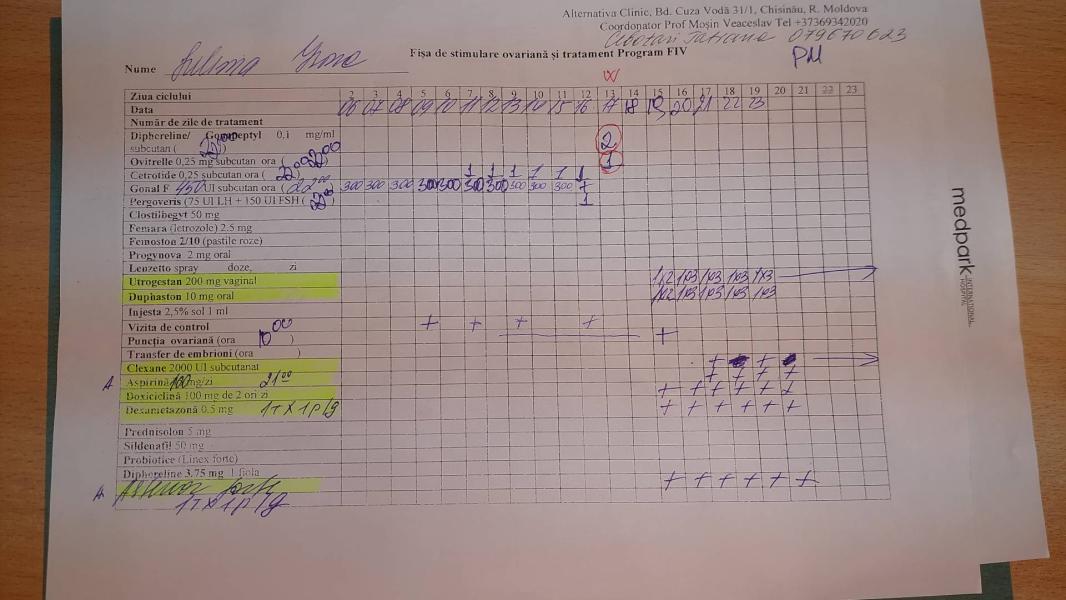 Alternativa Clinic, Bd. Cuza Vodă 31/1, Chisinău, R. Moldova
Coordonator Prof Moșin Veaceslav Tel +37369342020
Tatiana 079670623
Fișa de stimulare ovariană și tratament Program FIV
PM
Nume
Ziua ciclului 2 3 4 5 6 7 8 9 10 11 12 13 14 15 16 17 18 19 20 21 22 23
Data 06 07 08 09 10 11 12 13 14 15 16 17 18 19 20 21 22 23
Număr de zile de tratament
Diphereline/ Gonapeptyl 0,1 mg/ml 2
subcutan ( )
Ovitrelle 0,25 mg subcutan ora ( ) 1
Cetrotide 0,25 subcutan ora ( ) 1 1 1 1 1 1
Gonal F 450 UI subcutan ora (22 00) 300 300 300 300 300 300 300 300 300 300 +
Pergoveris (75 UI LH + 150 UI FSH ( ) 1
Clostilbegyt 50 mg
Femara (letrozole) 2.5 mg
Femoston 2/10 (pastile roze)
Progynova 2 mg oral
Lenzetto spray doze, zi
Utrogestan 200 mg vaginal 1x2 1x3 1x3 1x3 1x3
Duphaston 10 mg oral 1x2 1x3 1x3 1x3 1x3
Injesta 2,5% sol 1 ml
Vizita de control + + + +
Puncția ovariană (ora 10 00 ) +
Transfer de embrioni (ora )
Clexane 2000 UI subcutanat + +
A Aspirină 100 mg/zi 21 00 + + + +
Doxiciclină 100 mg de 2 ori zi + + + + +
Dexametazonă 0,5 mg 1T x 1p/g + + + + + +
Prednisolon 5 mg
Sildenafil 50 mg
Probiotice (Linex forte)
Diphereline 3,75 mg 1 fiola
A forte + + + + + +
1T x 1p/g
medpark
INTERNATIONAL
HOSPITAL